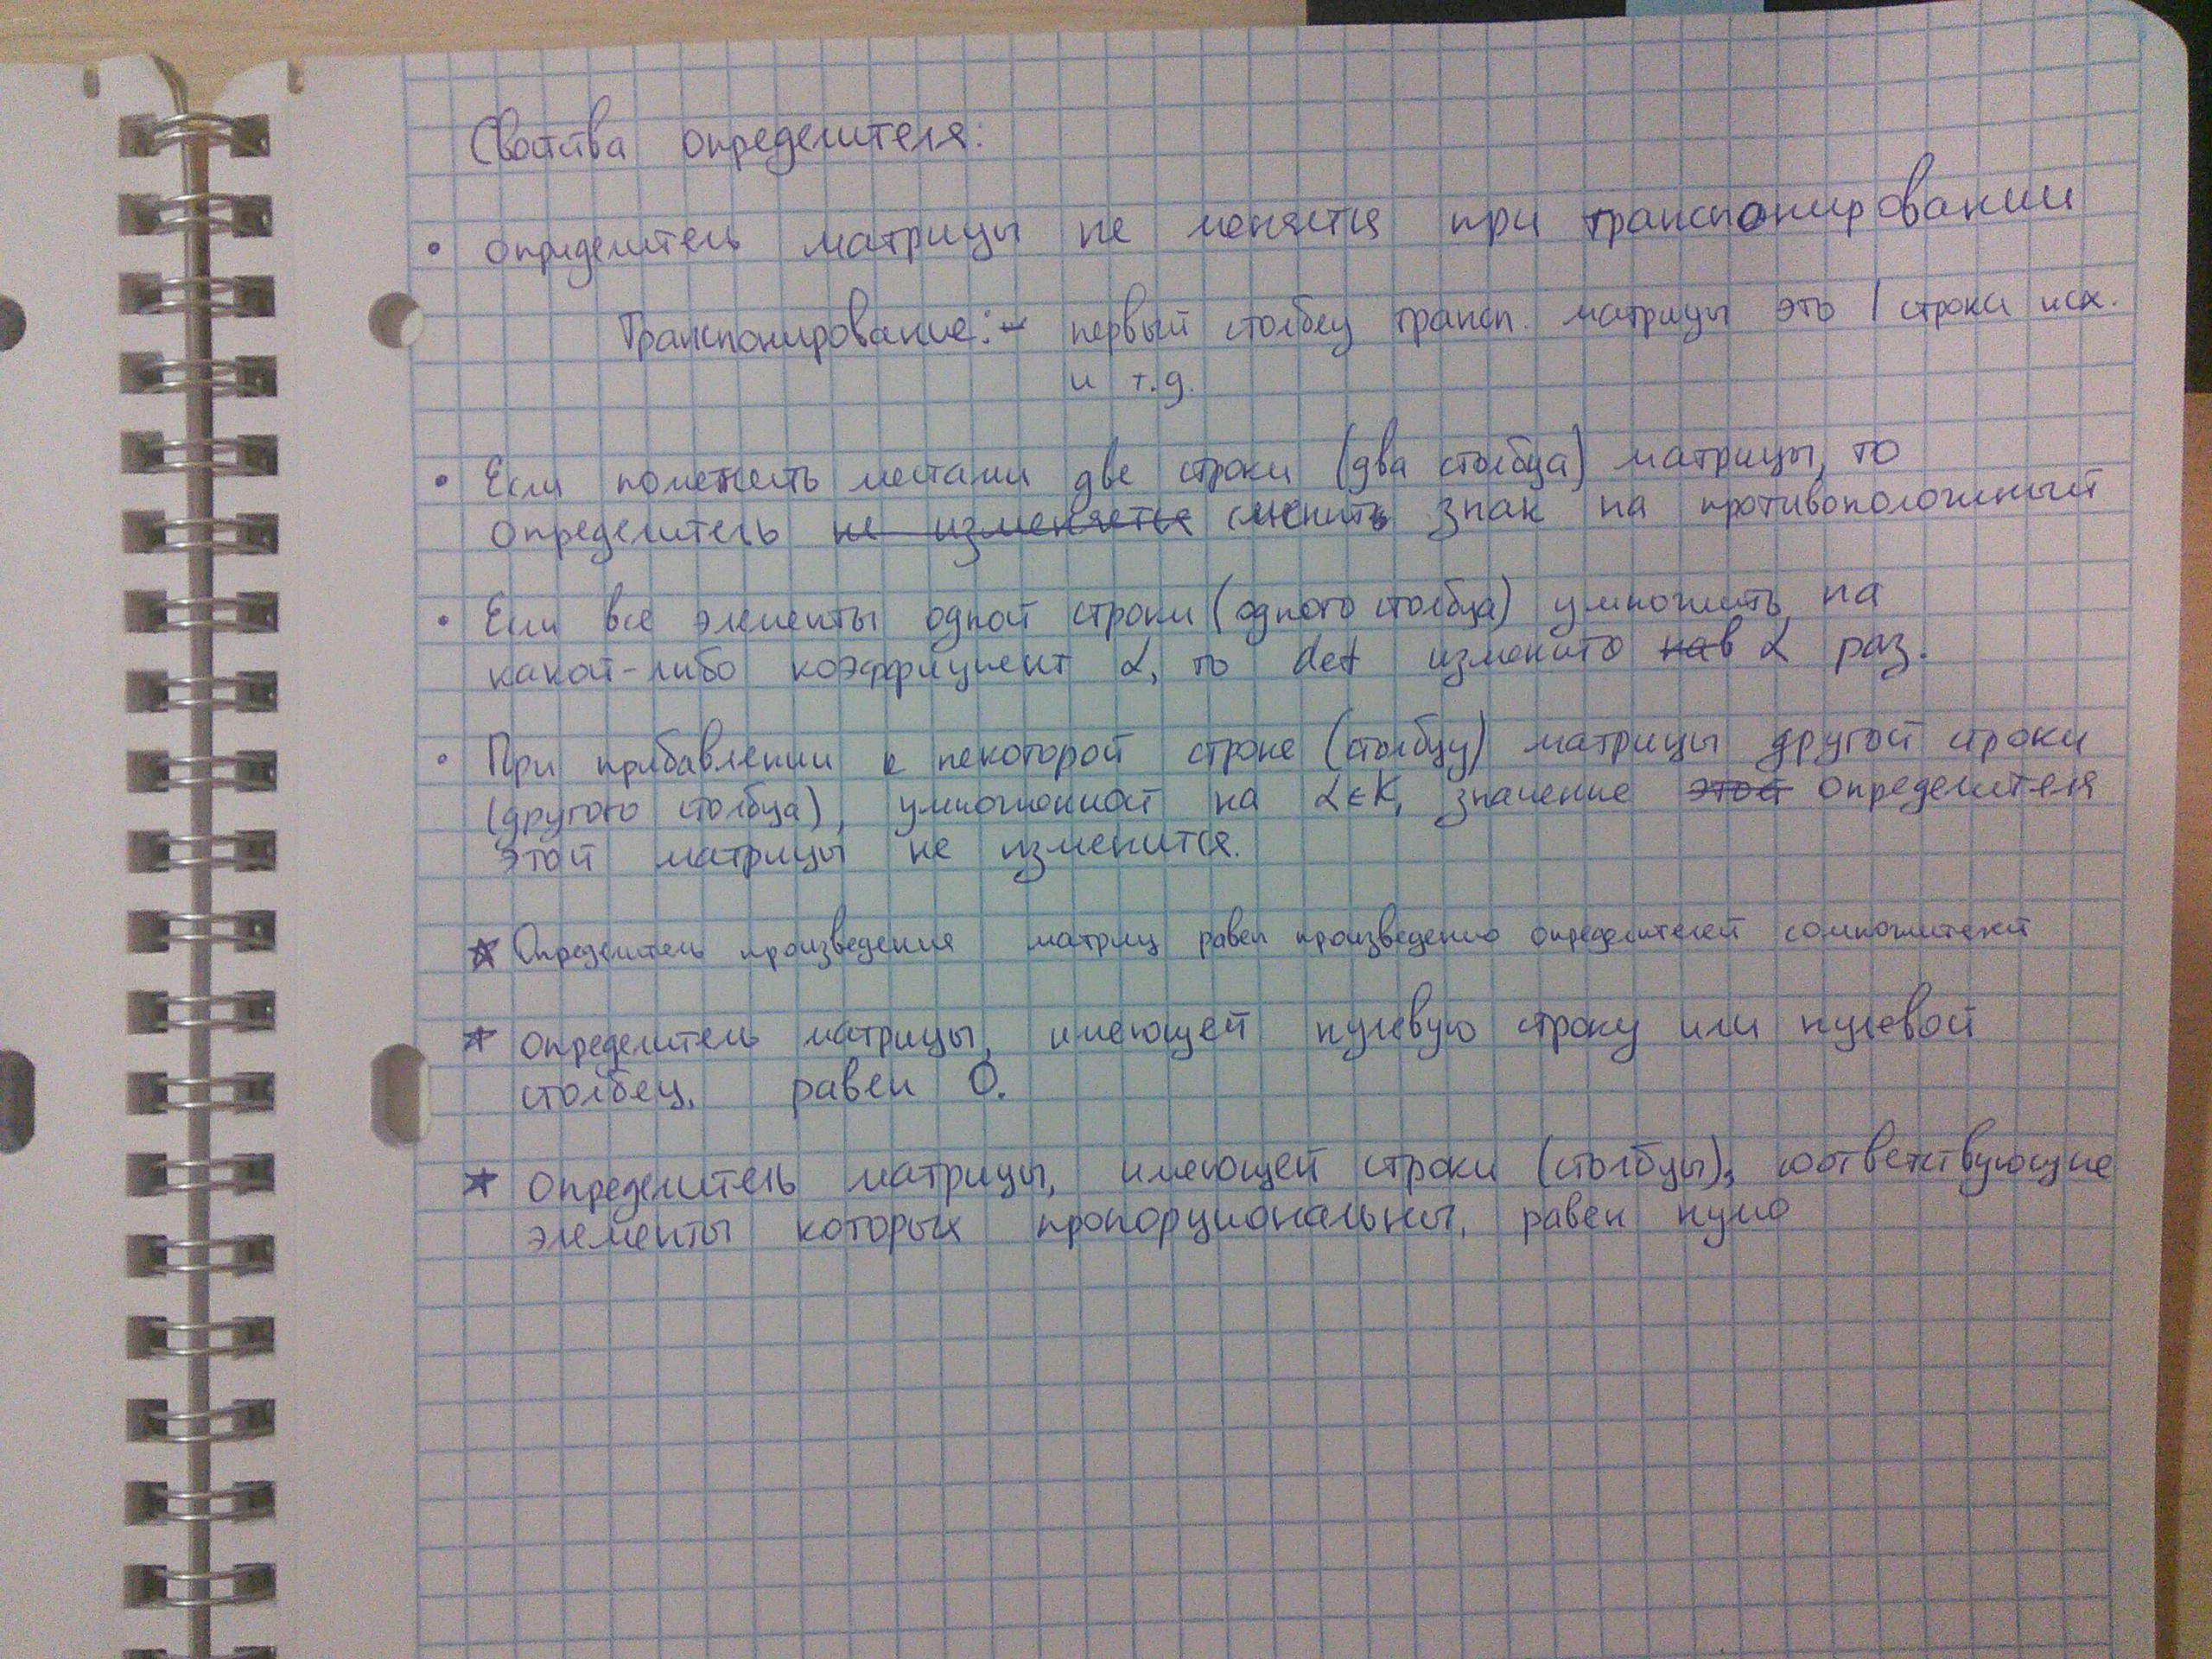 Свойства определителя:
• определитель матрицы не меняется при транспонировании
Транспонирование: – первый столбец трансп. матрицы это 1 строка исх.
и т.д.
• Если поменять местами две строки (два столбца) матрицы, то
определитель не изменяется сменить знак на противоположный
• Если все элементы одной строки (одного столбца) умножить на
какой-либо коэффициент α, то det измениться на в α раз.
• При прибавлении к некоторой строке (столбцу) матрицы другой строки
(другого столбца), умноженной на α∈K, значение этой определителя
этой матрицы не изменится.
★ Определитель произведения матриц равен произведению определителей сомножителей
★ определитель матрицы, имеющей нулевую строку или нулевой
столбец, равен 0.
★ определитель матрицы, имеющей строки (столбцы), соответствующие
элементы которых пропорциональны, равен нулю